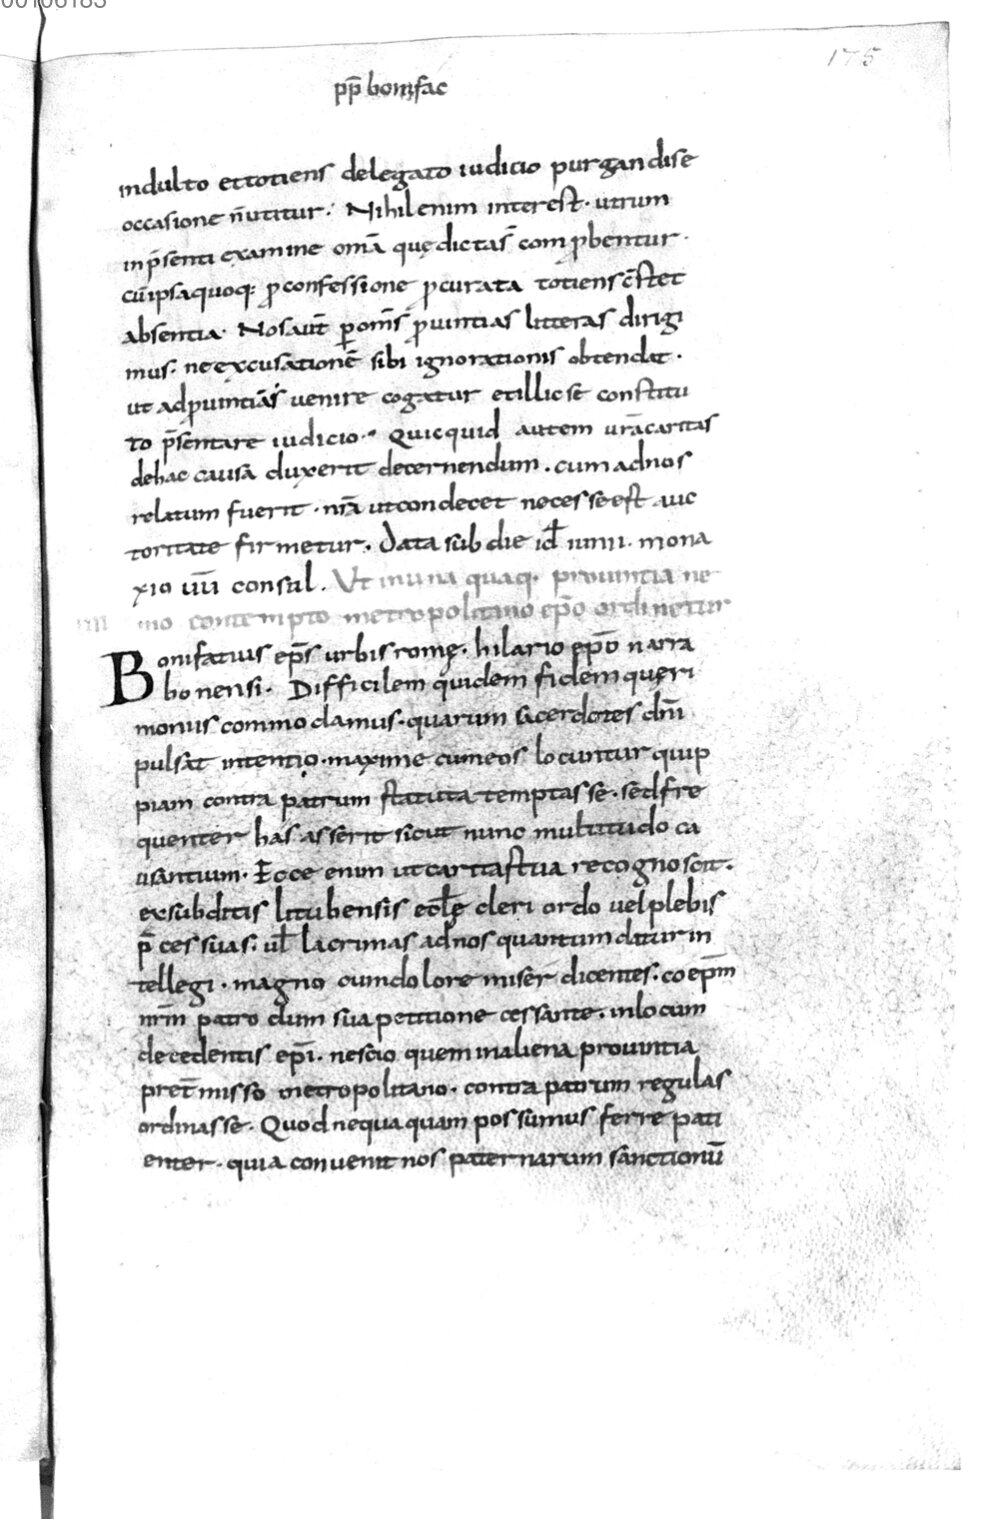 00106183
175
pp̄ bonifac
indulto et totiens delegato iudicio purgandi se
occasione n̄ utitur. Nihil enim interest. utrum
in p̄senti examine om̄a quę dicta s̄ comprobentur.
cū ipsa quoq: pro confessione procurata totiens c̄stet
absentia. Nos aūt per om̄s prouintias litteras dirigi
mus. ne excusationē sibi ignorationis obtendat.
ut ad prouintiā s' uenire cogatur et illic se constitu
to p̄sentare iudicio. Quicquid autem ur̄a caritas
de hac causa duxerit decernendum. cum ad nos
relatum fuerit. nr̄a ut condecet necesse est auc
toritate firmetur. Data sub die id iunii. mona
xio uū consul. Ut in una quaq. prouintia ne
iiii mo contempto metropolitano ep̄o ordinetur
Bonifatius ep̄s urbis romę. hilario ep̄o narra
bonensi. Difficilem quidem fidem queri
moniis commodamus. quarum sacerdotes dn̄i
pulsat intentio. maxime cum eos locuntur quip
piam contra patrum statuta temptasse. sed fre
quenter has asserit sicut nunc multitudo ca
usantium. Ecce enim ut caritas tua recognoscit.
ex subditis litubensis eclę cleri ordo uel plebis
p̄ces suas. ul lacrimas ad nos quantum datur in
tellegi. magno cum dolore miser dicentes. co ep̄m
nr̄m patroclum sua petitione cessante. in locum
decedentis ep̄i. nescio quem in aliena prouintia
pret̄misso metropolitano. contra patrum regulas
ordinasse. Quod nequaquam possumus ferre pati
enter. quia conuenit nos paternarum sanctionū